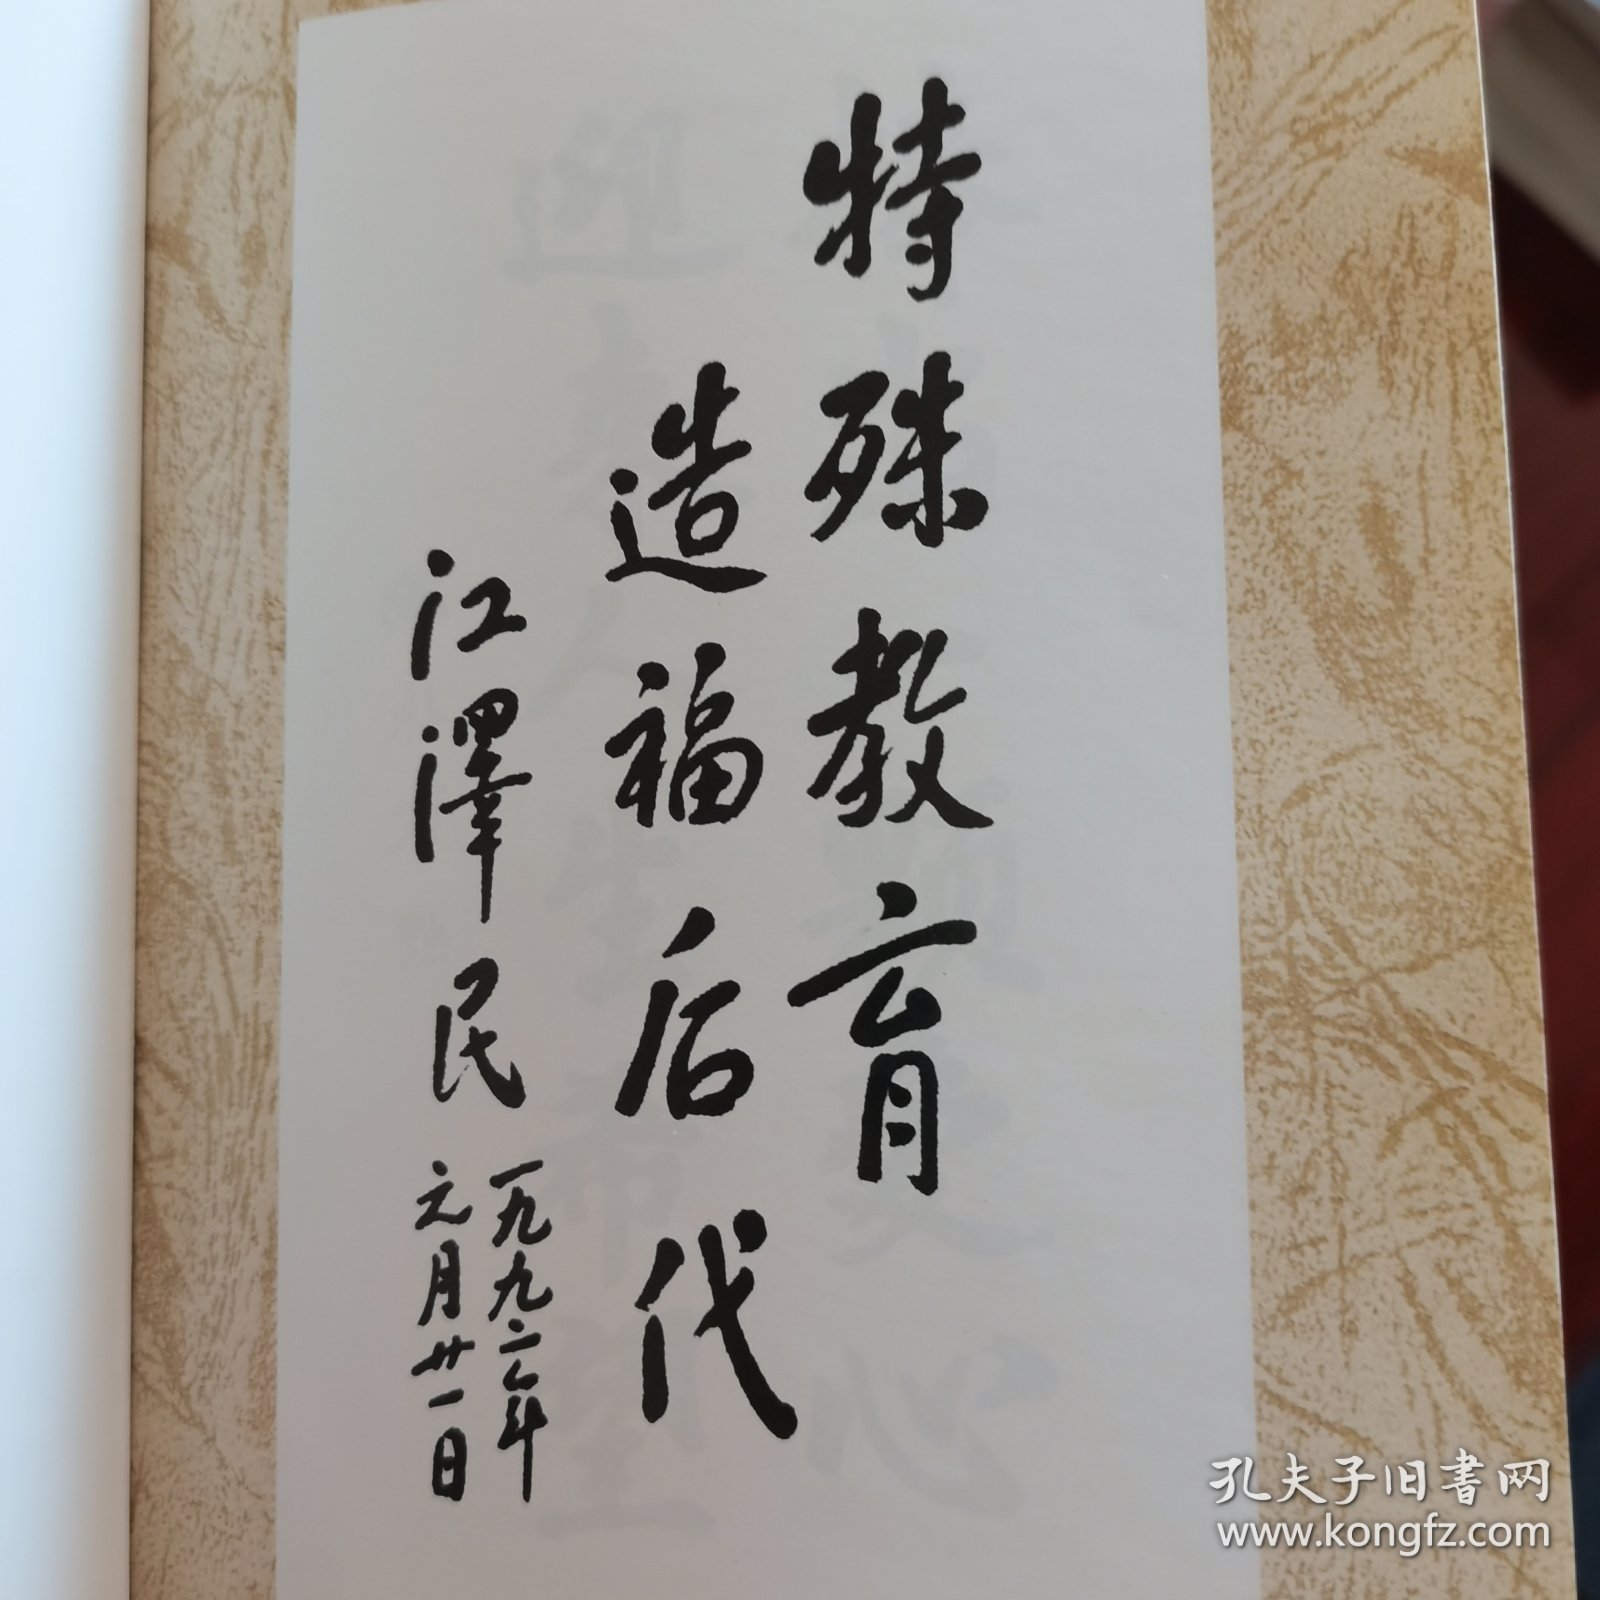 特殊教育
造福后代
江澤民
一九九二年
元月廿一日
孔夫子旧書网
www.kongfz.com